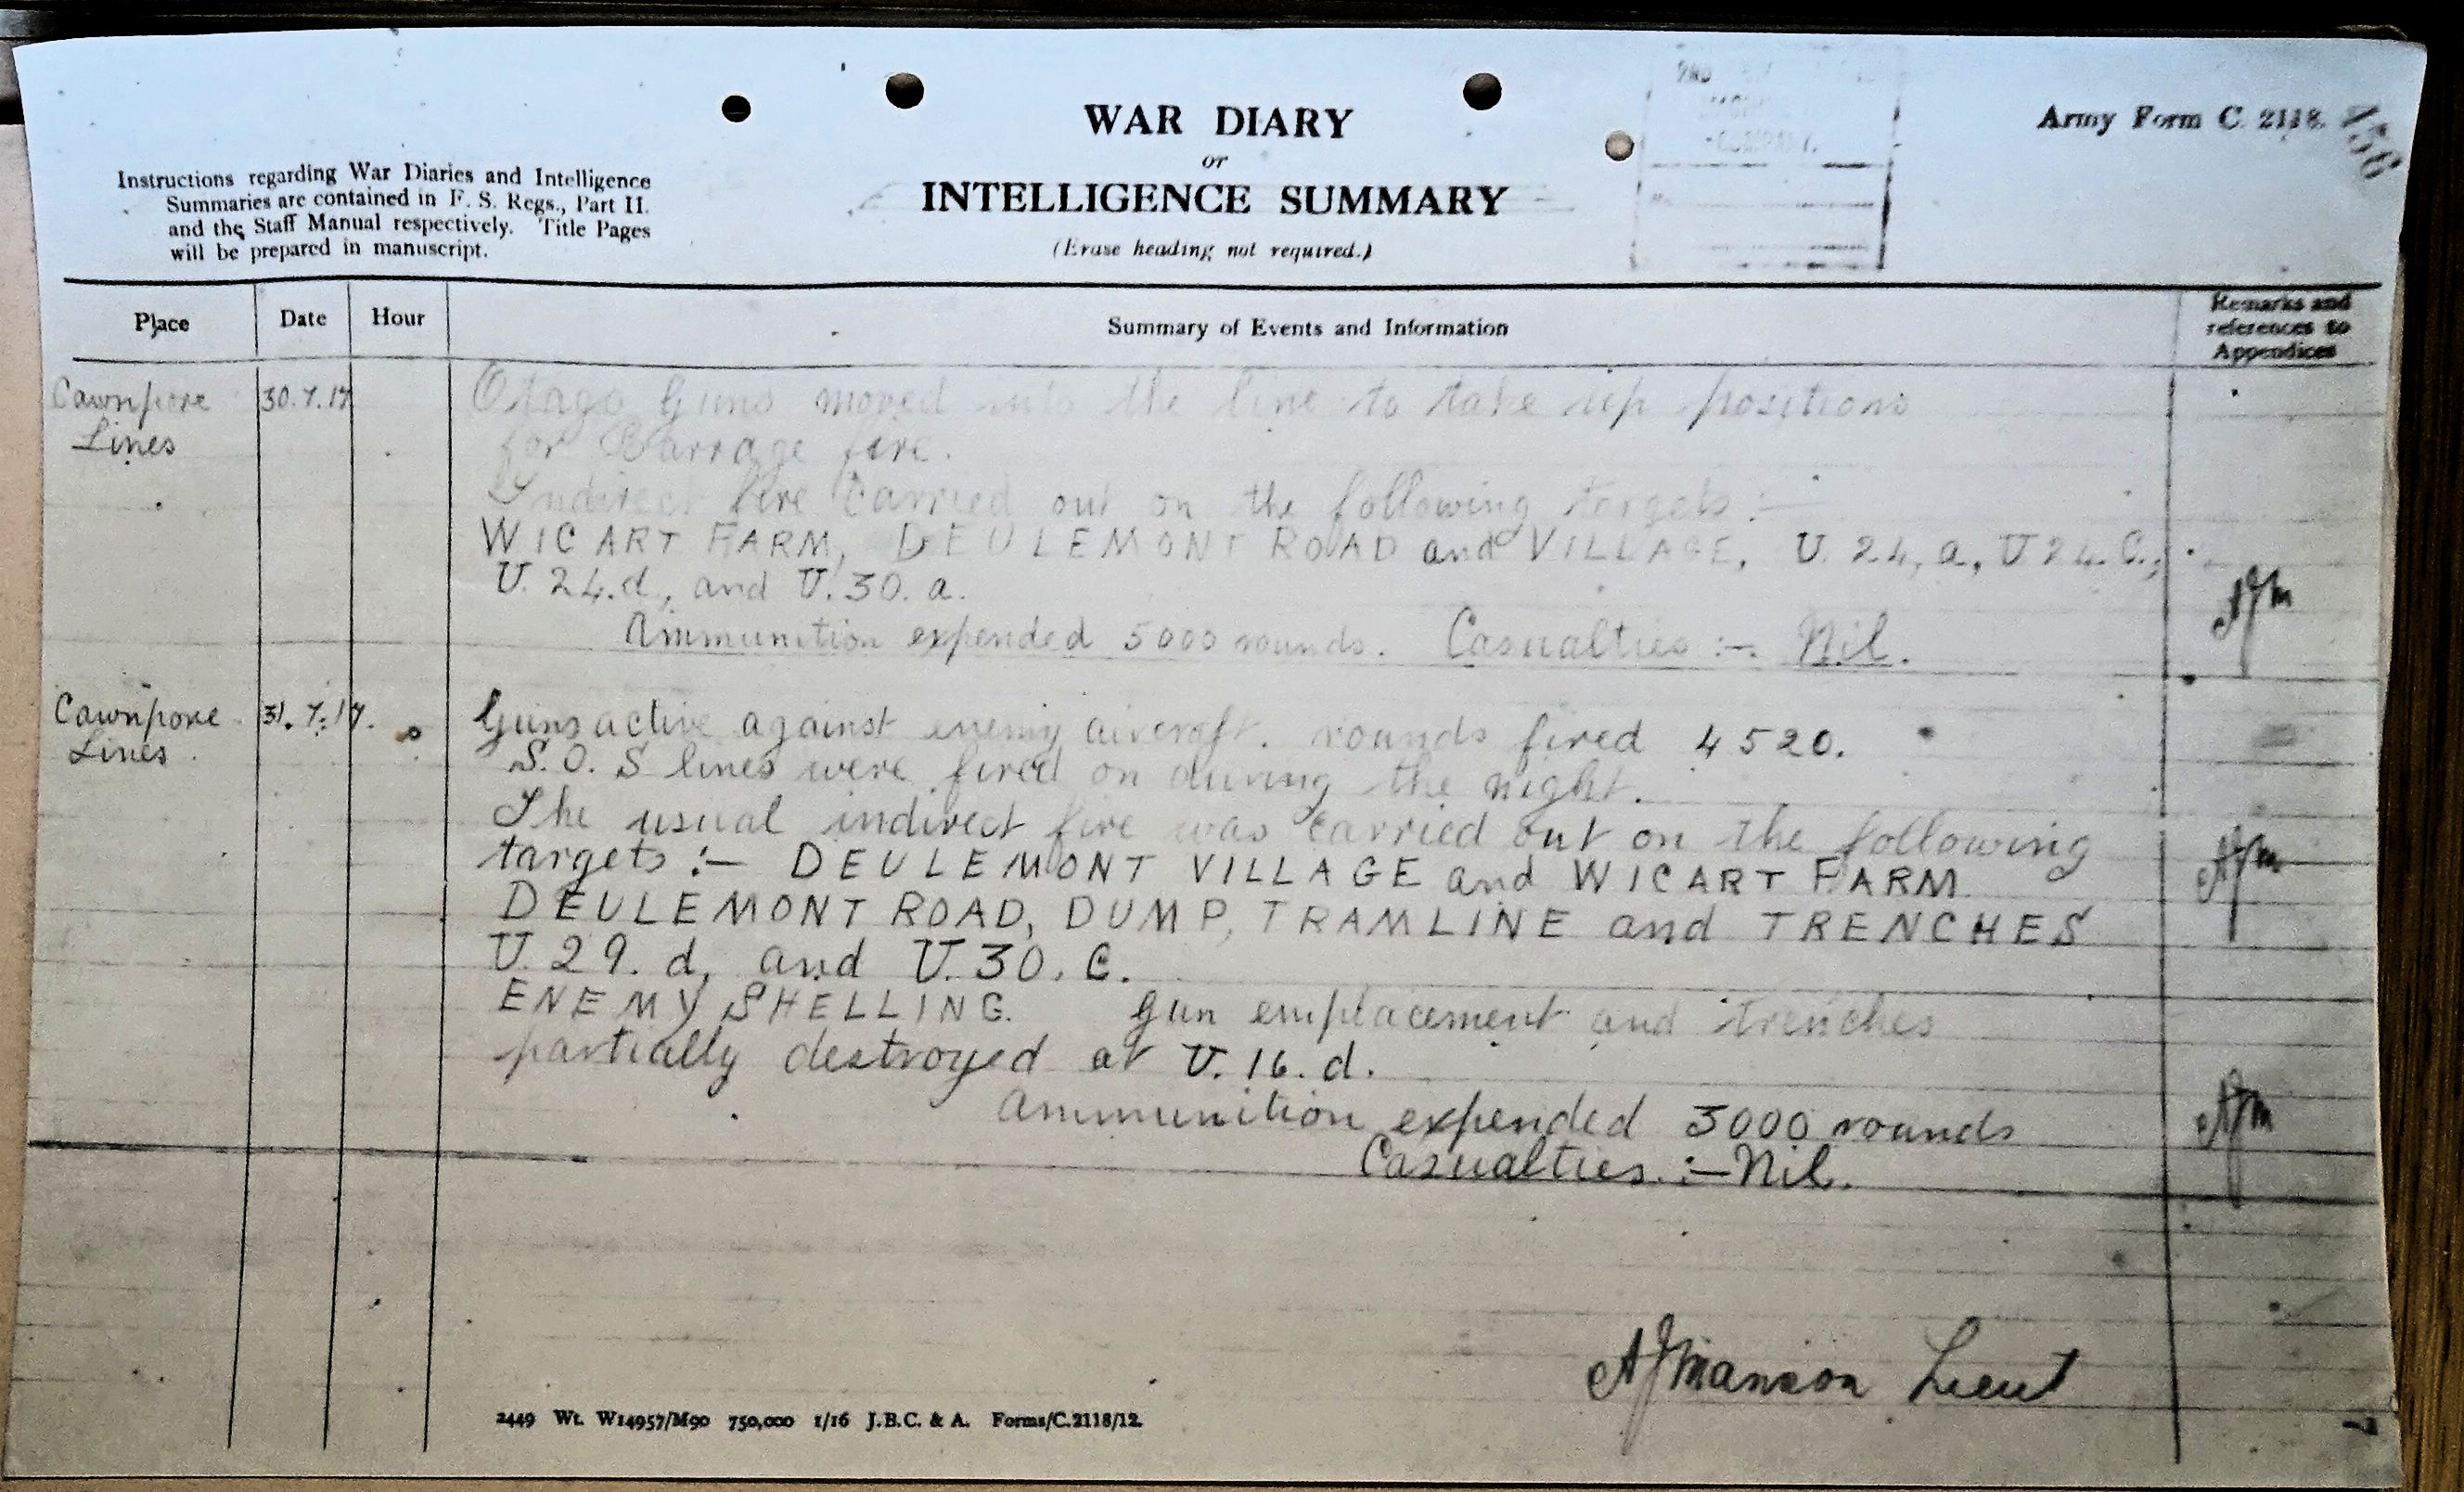 WAR DIARY
or
INTELLIGENCE SUMMARY
(Erase heading not required.)
Army Form C. 2118.
156
COMPANY.
Instructions regarding War Diaries and Intelligence
Summaries are contained in F. S. Regs., Part II.
and the Staff Manual respectively. Title Pages
will be prepared in manuscript.
Place Date Hour Summary of Events and Information Remarks and
references to
Appendices
Cawnpore 30.7.17 Otago Guns moved into the line to take up positions
Lines for Barrage fire.
Indirect fire Carried out on the following targets:-
WICART FARM, DEULEMONT ROAD and VILLAGE, U.24,a, U24.C.,
U.24.d, and U.30.a.
AJM
Ammunition expended 5000 rounds. Casualties :-. Nil.
Cawnpore 31.7.17. Guns active against enemy aircraft. rounds fired 4520.
Lines. S.O.S lines were fired on during the night.
The usual indirect fire was carried out on the following
targets :- DEULEMONT VILLAGE and WICART FARM
AJM
DEULEMONT ROAD, DUMP, TRAMLINE and TRENCHES
U.29.d, and U.30.C.
ENEMY SHELLING. Gun emplacement and trenches
partially destroyed at U.16.d.
Ammunition expended 3000 rounds
AJM
Casualties.:-Nil.
AJManson Lieut
2449 Wt. W14957/M90 750,000 1/16 J.B.C. & A. Forms/C.2118/12.